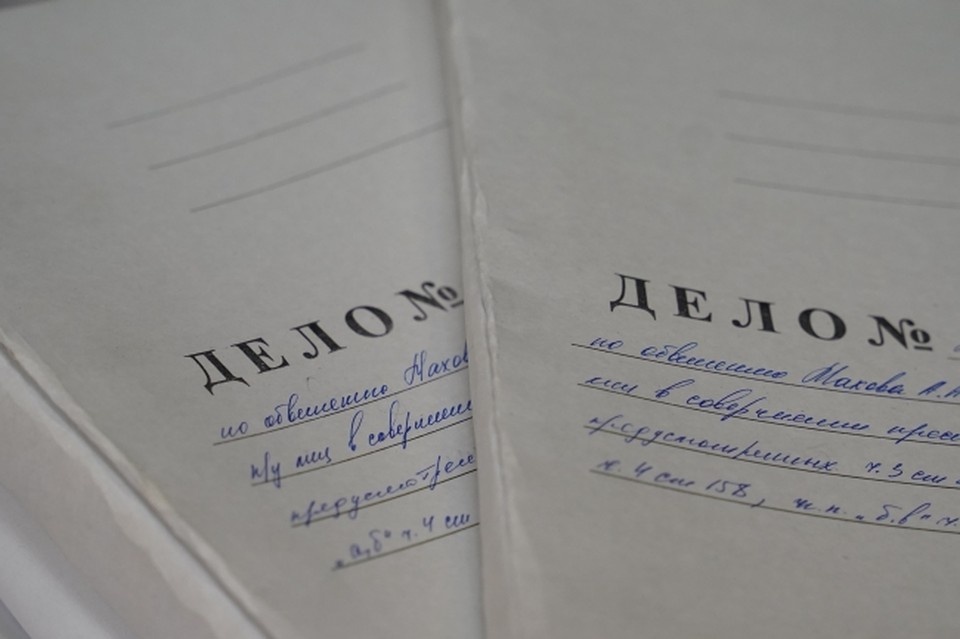 ДЕЛО №
по обвинению Махов
гр лиц в совершении
предусмотрен
"а,б" ч. 4 ст
ДЕЛО №
по обвинению Махова А.А
лиц в совершении прес
предусмотренных ч. 3 ст
ч. 4 ст 158, п.п. "б.в" ч.